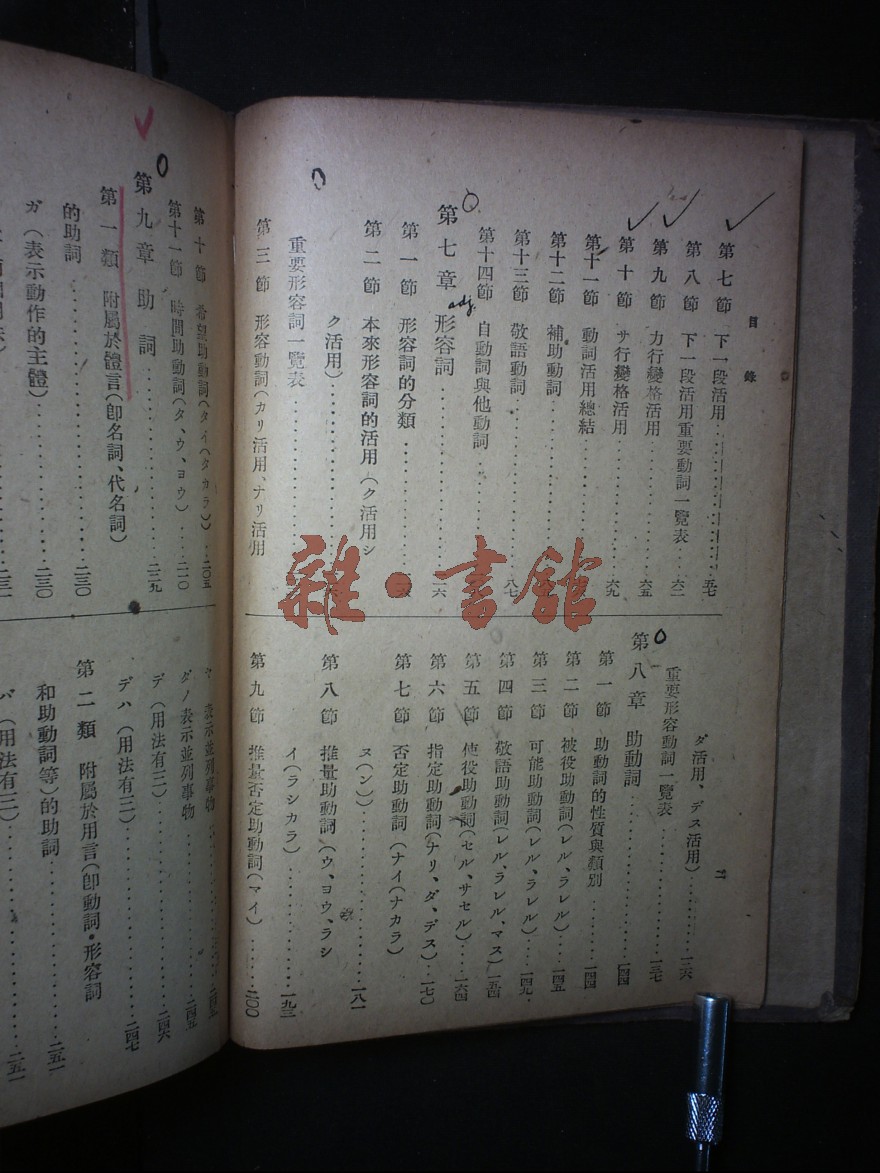 目錄
二
第七節 下一段活用……五七
第八節 下一段活用重要動詞一覽表…六二
第九節 カ行變格活用……六五
第十節 サ行變格活用……六九
第十一節 動詞活用總結
第十二節 補助動詞
第十三節 敬語動詞……八七
第十四節 自動詞與他動詞
第七章 形容詞
adj.
第一節 形容詞的分類
第二節 本來形容詞的活用(ク活用シ
ク活用)
重要形容詞一覽表
第三節 形容動詞(カリ活用、ナリ活用
ダ活用、デス活用)……一三六
重要形容動詞一覽表……一三七
第八章 助動詞……一四四
第一節 助動詞的性質與類別……一四四
第二節 被役助動詞(レル、ラレル)……一四五
第三節 可能助動詞(レル、ラレル)……一四九
第四節 敬語助動詞(レル、ラレル、マス)一五四
第五節 使役助動詞(セル、サセル)…一六四
第六節 指定助動詞(ナリ、ダ、デス)…一七〇
第七節 否定助動詞(ナイ(ナカラ)
ヌ(ン))……一八一
第八節 推量助動詞(ウ、ヨウ、ラシ
イ(ラシカラ)……一九三
第九節 推量否定助動詞(マイ)……二〇〇
第十節 希望助動詞(タイ(タカラ))…二〇五
第十一節 時間助動詞(タ、ウ、ヨウ)…二一〇
第九章 助詞……二二九
第一類 附屬於體言(卽名詞、代名詞)
的助詞……二三〇
ガ(表示動作的主體)……二三〇
ヤ 表示並列事物……二四五
ダノ表示並列事物……二四五
デ(用法有三)……二四六
デハ(用法有三)……二四七
第二類 附屬於用言(卽動詞・形容詞
和助動詞等)的助詞……二五一
バ(用法有三)……二五一
雜·書館